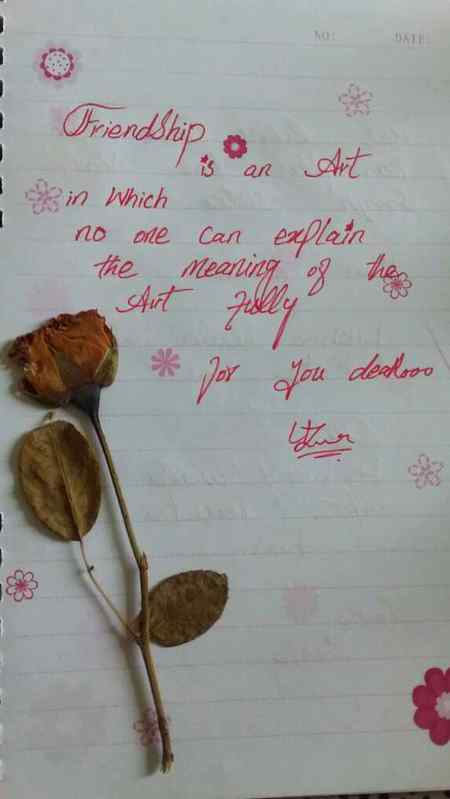 NO: DATE:
Friendship
is an Art
in Which
no one can explain
the meaning of the
Art fully
for you dearooo